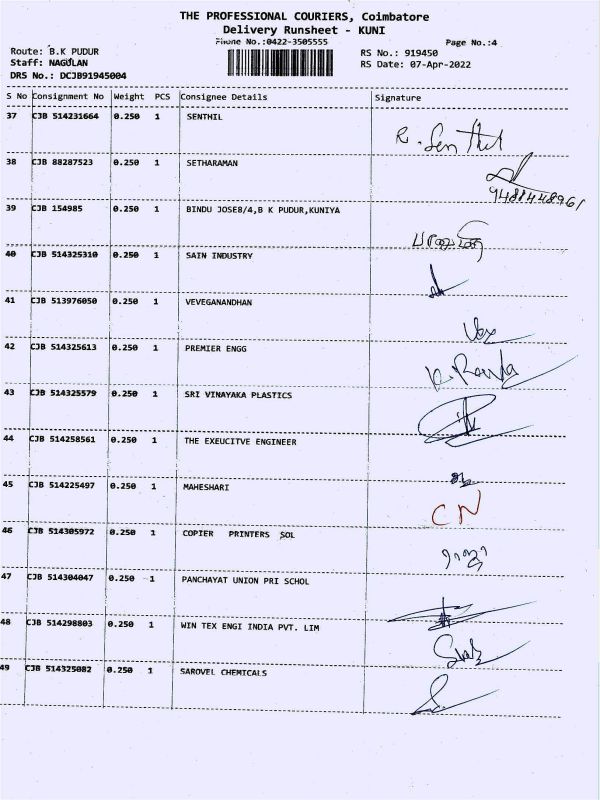 THE PROFESSIONAL COURIERS, Coimbatore
Delivery Runsheet - KUNI
Phone No.:0422-3505555
Page No.:4
Route: B.K PUDUR
RS No.: 919450
Staff: NAGULAN
RS Date: 07-Apr-2022
DRS No.: DCJB91945004
S No Consignment No Weight PCS Consignee Details Signature
37 CJB 514231664 0.250 1 SENTHIL
R. Senthil
38 CJB 88287523 0.250 1 SETHARAMAN
9488448961
39 CJB 154985 0.250 1 BINDU JOSE8/4,B K PUDUR,KUNIYA
40 CJB 514325310 0.250 1 SAIN INDUSTRY
41 CJB 513976050 0.250 1 VEVEGANANDHAN
42 CJB 514325613 0.250 1 PREMIER ENGG
43 CJB 514325579 0.250 1 SRI VINAYAKA PLASTICS
44 CJB 514258561 0.250 1 THE EXEUCITVE ENGINEER
45 CJB 514225497 0.250 1 MAHESHARI
CN
46 CJB 514305972 0.250 1 COPIER PRINTERS SOL
47 CJB 514304047 0.250 1 PANCHAYAT UNION PRI SCHOL
48 CJB 514298803 0.250 1 WIN TEX ENGI INDIA PVT. LIM
49 CJB 514325082 0.250 1 SAROVEL CHEMICALS